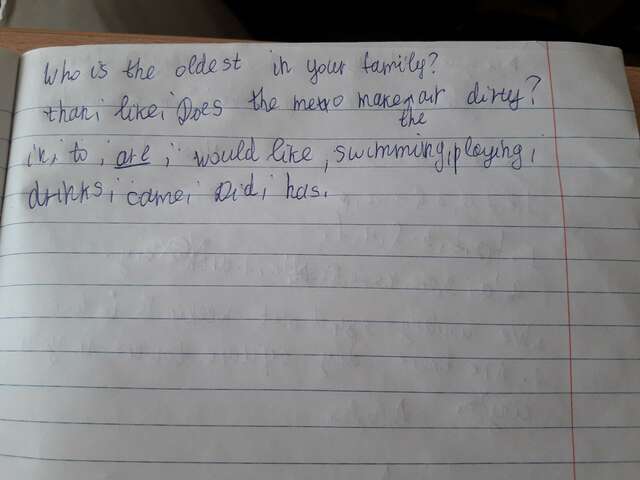 Who is the oldest in your family?
than; like; Does the metro make the air dirty?
in; to; are; would like; swimming; playing;
drinks; came; Did; has.